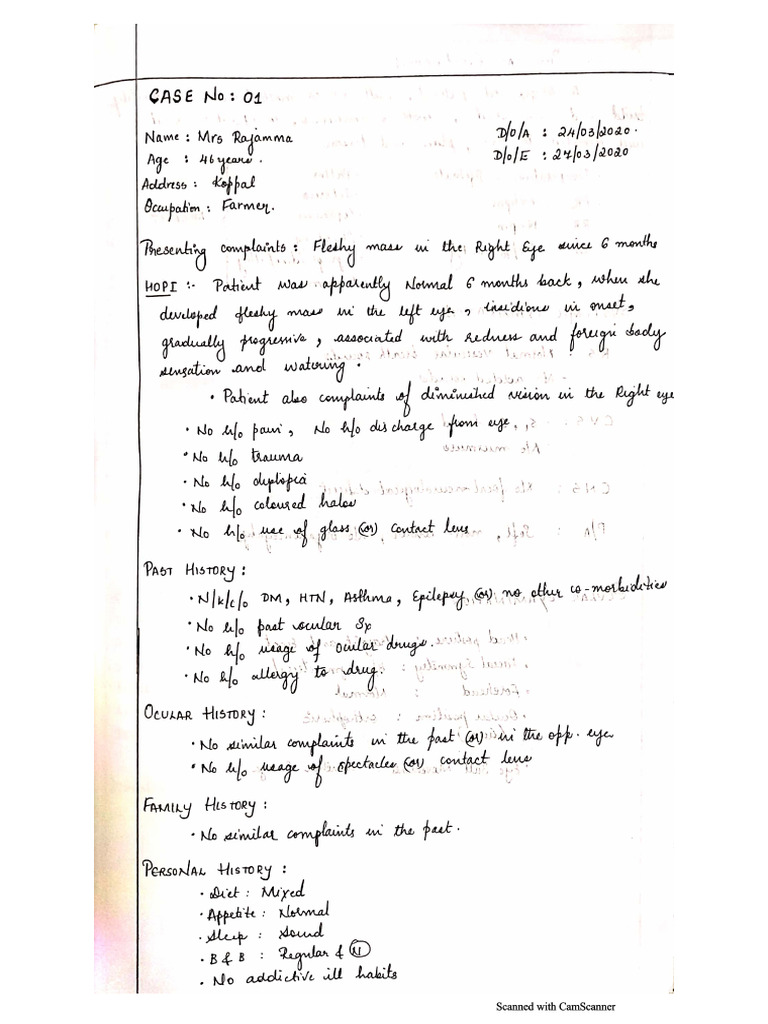 CASE No: 01
Name : Mrs Rajamma D/O/A : 24/03/2020.
Age : 46 years. D/O/E : 27/03/2020
Address : Koppal
Occupation : Farmer.
Presenting complaints : Fleshy mass in the Right Eye since 6 months
HOPI :- Patient was apparently Normal 6 months back, when she
developed fleshy mass in the left eye, insidious in onset,
gradually progressive, associated with redness and foreign body
sensation and watering.
• Patient also complaints of diminished vision in the Right eye
• No h/o pain, No h/o discharge from eye,
• No h/o trauma
• No h/o diplopia
• No h/o coloured halos
• No h/o use of glass (or) contact lens
PAST HISTORY :
• N/k/c/o DM, HTN, Asthma, Epilepsy (or) no other co-morbidities
• No h/o past ocular Sx
• No h/o usage of ocular drugs.
• No h/o allergy to drug.
OCULAR HISTORY :
• No similar complaints in the past (or) in the opp. eye
• No h/o usage of spectacles (or) contact lens
FAMILY HISTORY :
• No similar complaints in the past.
PERSONAL HISTORY :
• Diet : Mixed
• Appetite : Normal
• Sleep : Sound
• B & B : Regular & (N)
• No addictive ill habits
Scanned with CamScanner